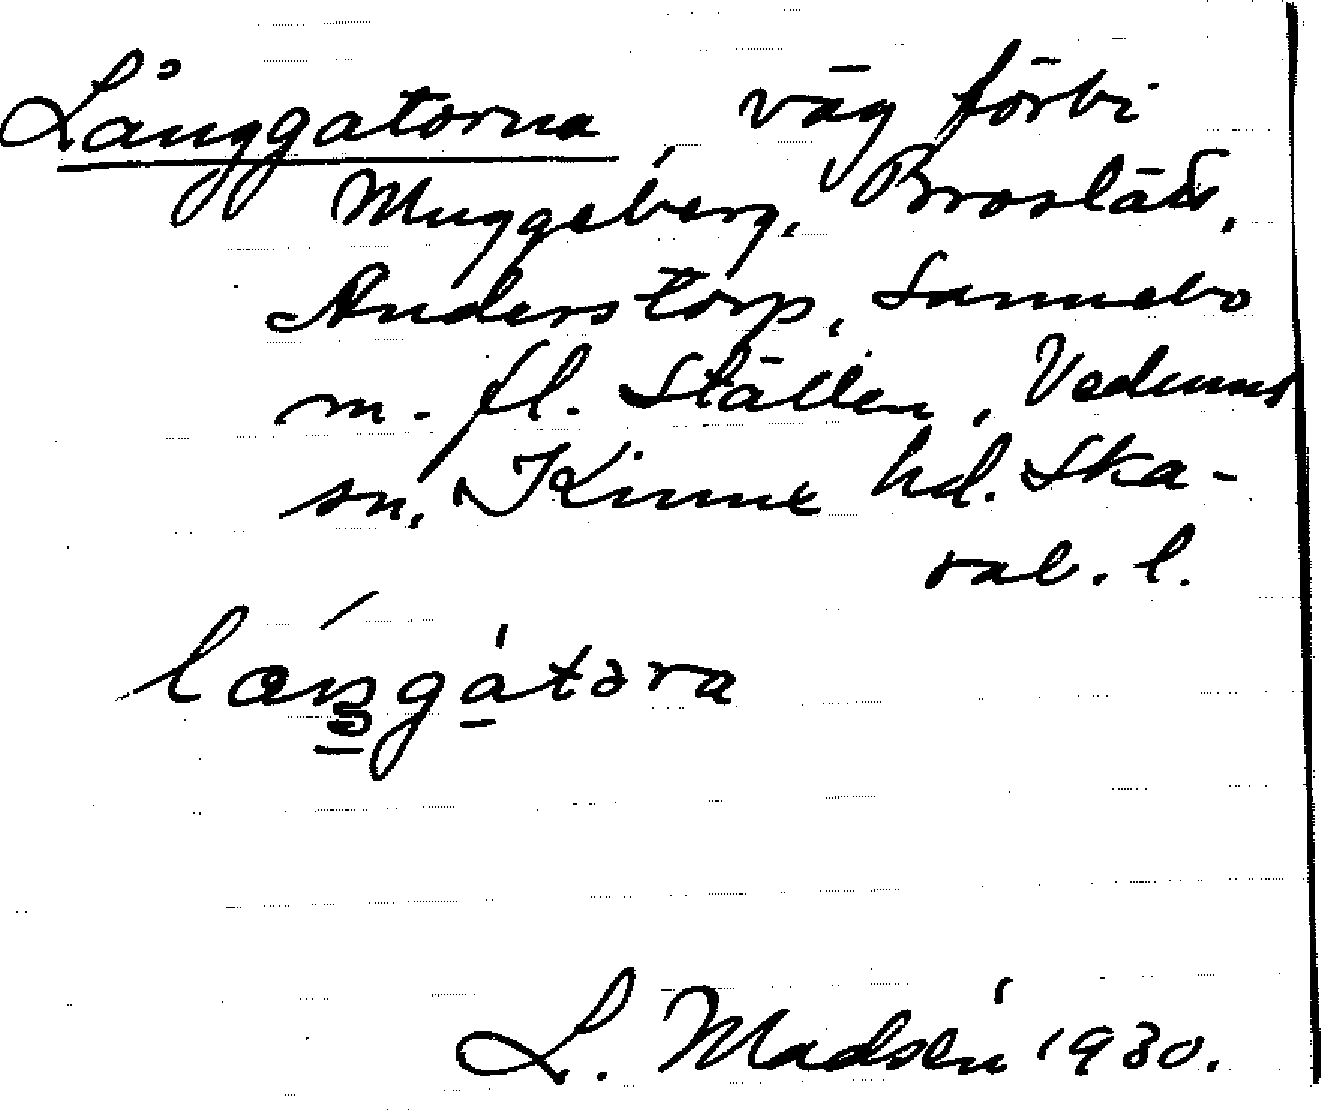 Långgatorna väg förbi
Muggeberg, Broslätt,
Anderstorp, Sannebo
m. fl. ställen, Vedums
sn, Kinne hd. Ska-
rab. l.
L. Madsén 1930.